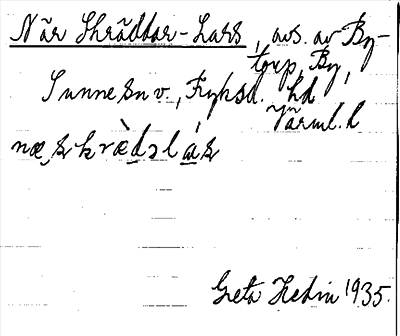 När Skräddar-Lars, avs. av By-
torp, By,
Sunne sn v., Fryksd. hd
Värml. l
næ̨ skræ̀dəlás
Greta Hedin 1935.